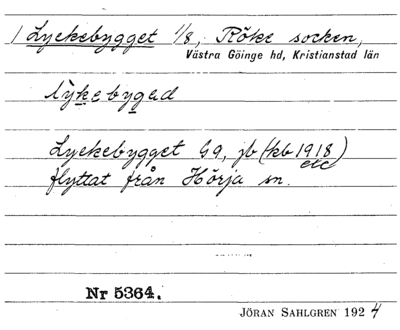 1 Lyckebygget 1/8, Röke socken,
Västra Göinge hd, Kristianstad län
Lyckebygget G9, jb (kb 1918 etc)
flyttat från Hörja sn.
Nr 5364.
JÖRAN SAHLGREN 1924